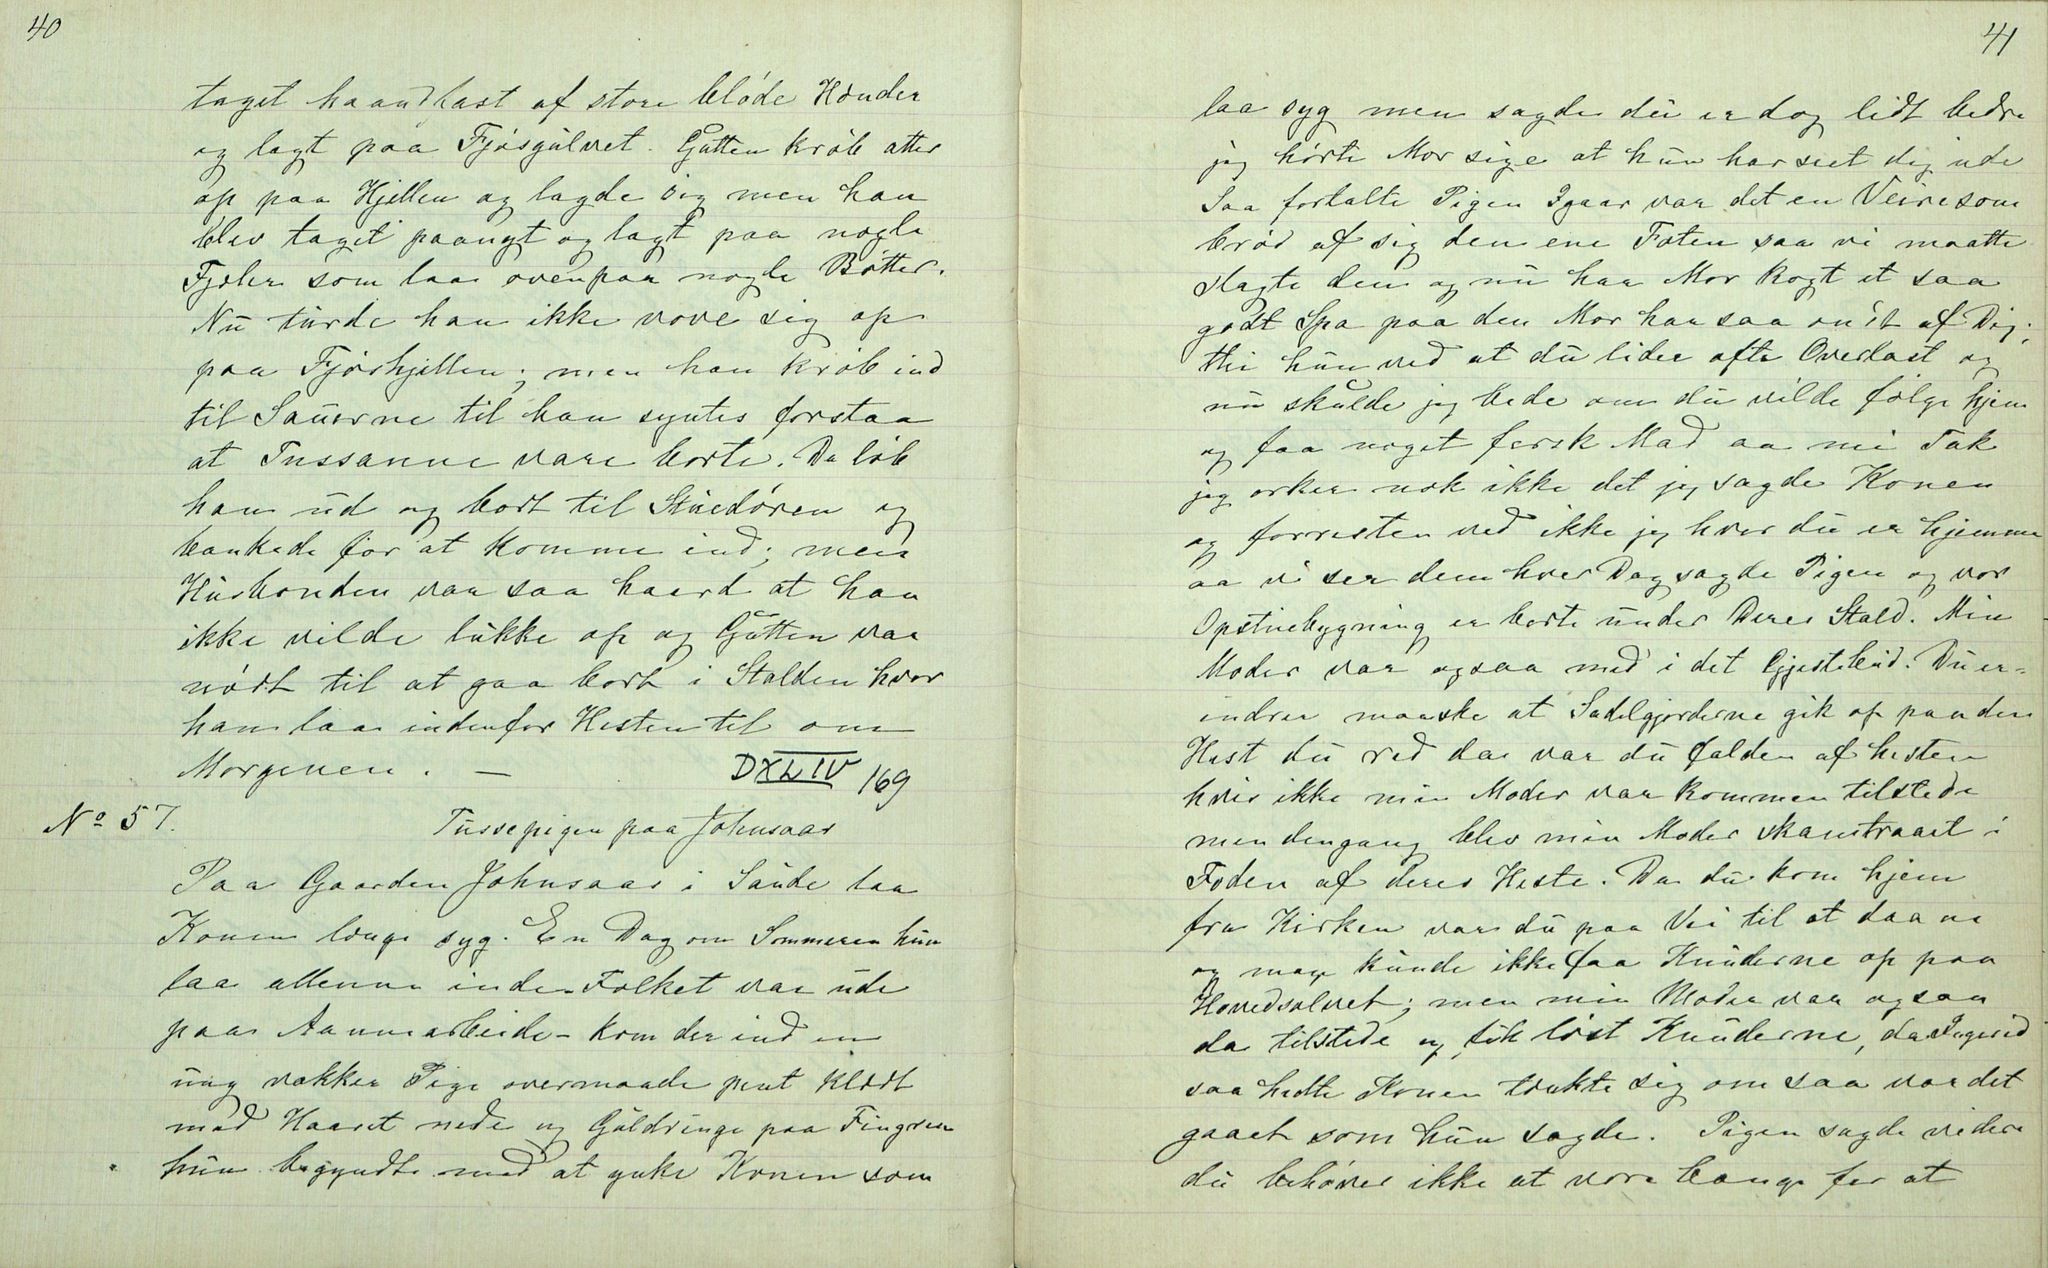 40
taget haandfast af store bløde Hænder
og lagt paa Fjøsgulvet. Gutten krøb atter
op paa Hjellen og lagde sig men han
blev taget paanyt og lagt paa nogle
Fjæler som laa ovenpaa nogle Bøtter.
Nu turde han ikke vove sig op
paa Fjøshjellen; men han krøb ind
til Sauerne til han syntes forstaa
at Tussanne vare borte. Da løb
han ud og bort til Stuedøren og
bankede for at komme ind; men
Husbonden var saa haard at han
ikke vilde lukke op og Gutten var
nødt til at gaa bort i Stalden hvor
han laa indenfor Hesten til om
Morgenen. —
DXLIV 169
No 57.
Tussepigen paa Johnsaas
Paa Gaarden Johnsaas i Saude laa
Konen længe syg. En Dag om Sommeren hun
laa allenne inde - Folket var ude
paa Aannearbeide - kom der ind en
ung vakker Pige overmaade pent klædt
med Haaret nede og Guldringe paa Fingren
hun begyndte med at ynke Konen som
41
laa syg men sagde du er dog lidt bedre
jeg hørte Mor sige at hun har seet dig ude
Saa fortalte Pigen Igaar var det en Veire som
brød af sig den ene Foten saa vi maatte
slagte den og nu har Mor kogt et saa
godt Spa paa den Mor har saa ondt af Dig;
thi hun ved at du lider ofte Overlast og
nu skulde jeg bede om du vilde følge hjem
og faa noget fersk Mad aa nei Tak
jeg orker nok ikke det jeg sagde Konen
og forresten ved ikke jeg hvor du er hjemme
aa vi ser dem hver Dag sagde Pigen og vor
Opstuebygning er borte under Deres Stald. Min
Moder var ogsaa med i det Gjestebud. Du er-
indrer maaske at Sadelgjorderne gik op paa den
Hest du red da var du falden af hesten
hvis ikke min Moder var kommen tilstede
men dengang blev min Moder skamtraaet i
Foden af deres Heste. Da du kom hjem
fra Kirken var du paa Vei til at daane
og man kunde ikke faa Knuderne op paa
Hovedsølvet; men min Moder var ogsaa
da tilstede og fik løst Knuderne, da Ingerid
saa hedte Konen tænkte sig om saa var det
gaaet som hun sagde. Pigen sagde videre
du behøver ikke at være bange for at